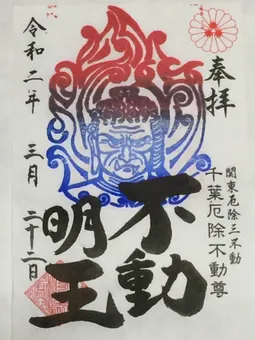 奉拝
関東厄除三不動
千葉厄除不動尊
不動
明王
令和二年 三月 二十二日